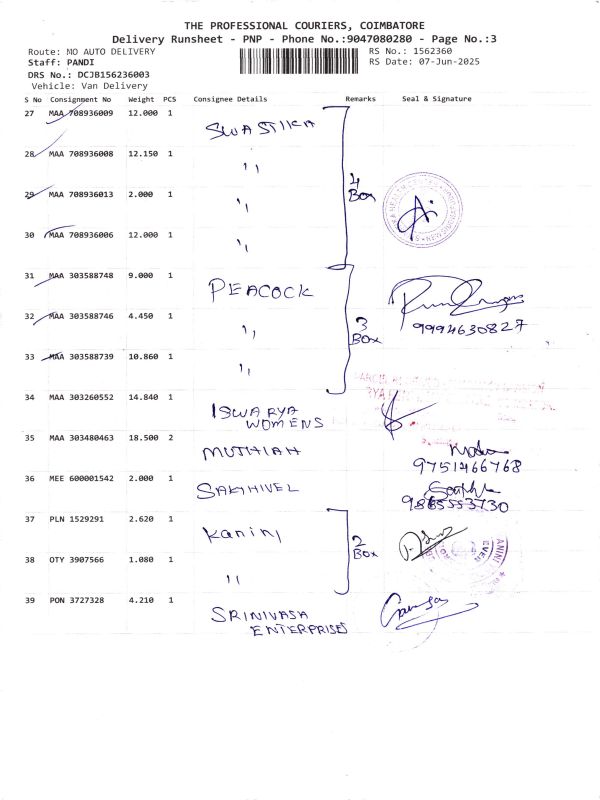 THE PROFESSIONAL COURIERS, COIMBATORE
Delivery Runsheet - PNP - Phone No.:9047080280 - Page No.:3
Route: MO AUTO DELIVERY
RS No.: 1562360
Staff: PANDI
RS Date: 07-Jun-2025
DRS No.: DCJB156236003
Vehicle: Van Delivery
S No Consignment No Weight PCS Consignee Details Remarks Seal & Signature
27 MAA 708936009 12.000 1 SWASTIKA
28 MAA 708936008 12.150 1 ''
4 Box
29 MAA 708936013 2.000 1 ''
30 MAA 708936006 12.000 1 ''
31 MAA 303588748 9.000 1 PEACOCK
32 MAA 303588746 4.450 1 '' 3 Box 9994630827
33 MAA 303588739 10.860 1 ''
34 MAA 303260552 14.840 1 ISWARYA WOMENS
35 MAA 303480463 18.500 2 MUTHIAH 9751466768
36 MEE 600001542 2.000 1 SAKTHIVEL 9865553730
37 PLN 1529291 2.620 1 Kanini
2 Box
38 OTY 3907566 1.080 1 ''
39 PON 3727328 4.210 1 SRINIVASA ENTERPRISES